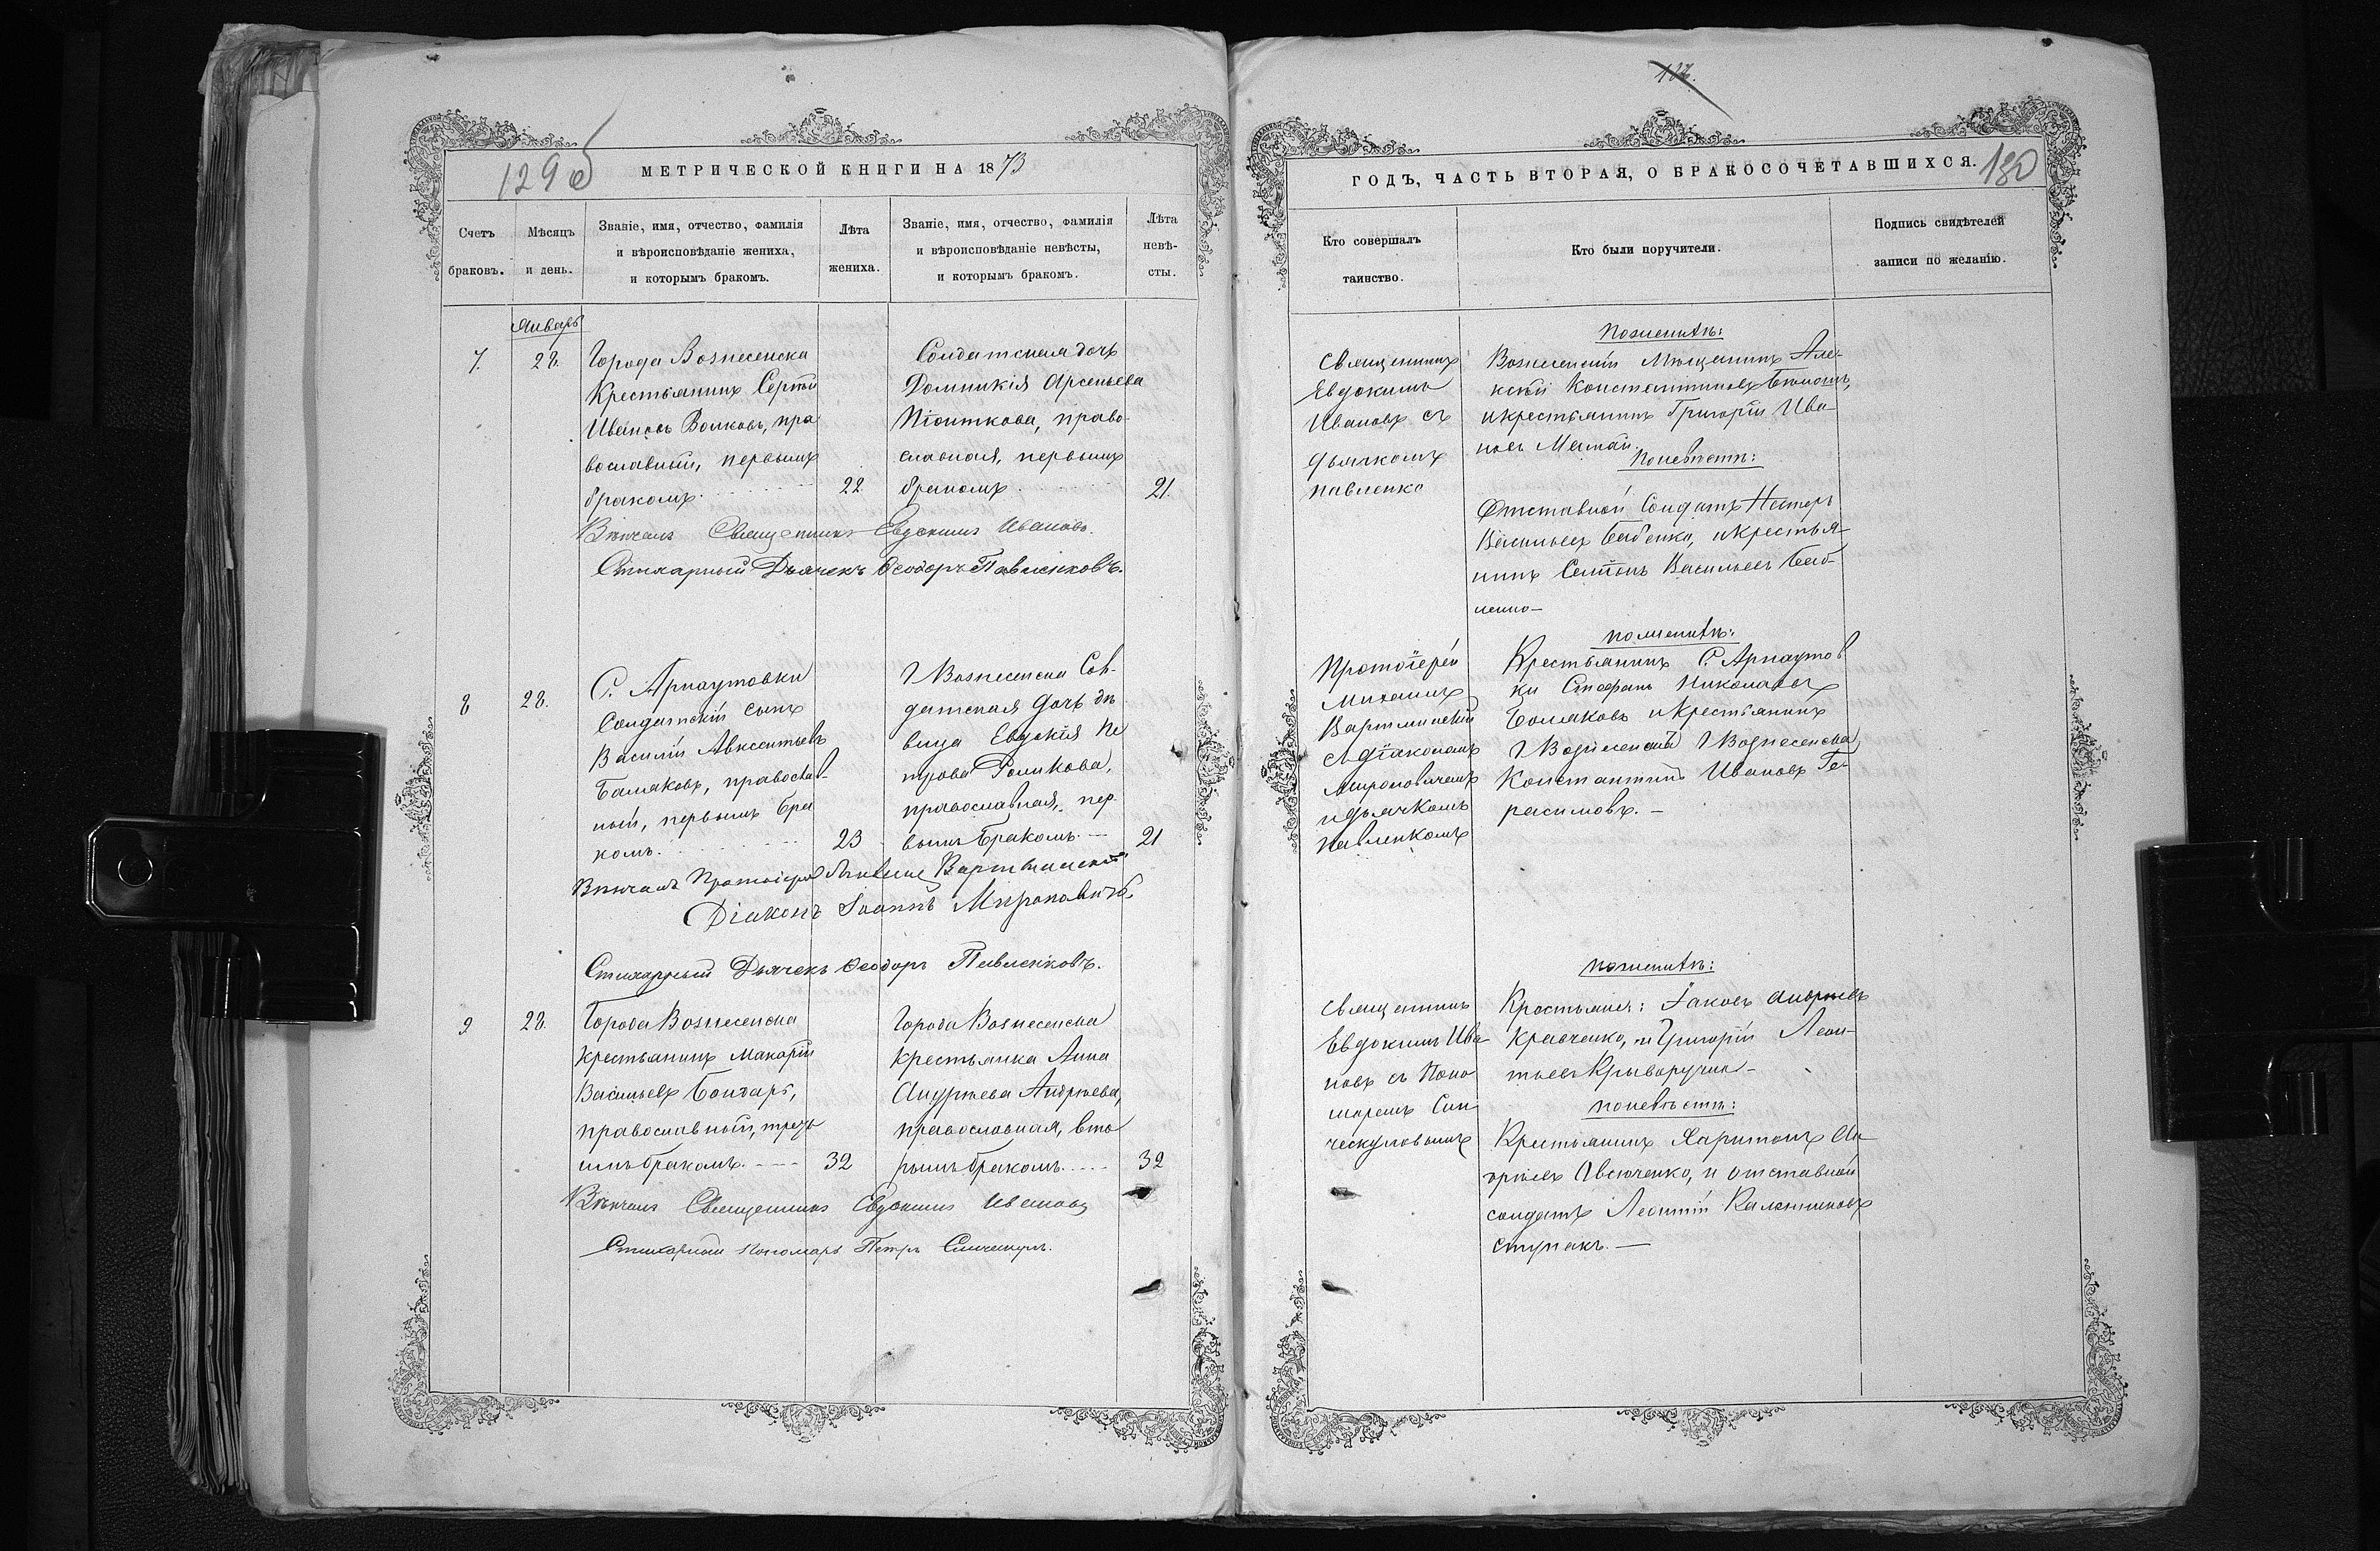 129 об
МЕТРИЧЕСКОЙ КНИГИ НА 1873
Счетъ браковъ.
Мѣсяцъ и день.
Званіе, имя, отчество, фамилія
и вѣроисповѣданіе жениха,
и которымъ бракомъ.
Лѣта
жениха.
Званіе, имя, отчество, фамилія
и вѣроисповѣданіе невѣсты,
и которымъ бракомъ.
Лѣта
невѣ-
сты.
Январь
7.
28.
Города Вознесенска
Крестьянинъ Сергѣй
Ивановъ Волковъ, пра
вославный, первымъ
бракомъ.
22.
Солдатская дочь
Домникія Арсеньева
православная, первымъ
бракомъ
21.
Вѣнчалъ Священникъ Евдокимъ Ивановъ.
Стихарный Дьячекъ Ѳеодоръ Павленковъ.
8
28.
С. Арнаутовки
Солдатскій сынъ
Василій Авксентьевъ
Балаковъ, православ-
ный, первымъ бра
комъ.
23
Г Вознесенска Сол-
датская дочь дѣ
вица Евдокія Пе
трова
православная, пер-
вымъ бракомъ.—
21
Вѣнчалъ Протоіерей
Діаконъ Іоаннъ Мироновичъ
Стихарный Дьячекъ Ѳеодоръ Павленковъ.
9.
28.
Города Вознесенска
крестьянинъ Макарій
Васильевъ Бондарь,
православный, треть
имъ бракомъ.
32
Города Вознесенска
крестьянка Анна
Андреева Андреева,
православная, вто
рымъ бракомъ.
32
Вѣнчалъ Священникъ Евдокимъ Ивановъ
Стихарный пономарь Петръ
127.
ГОДЪ, ЧАСТЬ ВТОРАЯ, О БРАКОСОЧЕТАВШИХСЯ.
130
Кто совершалъ
таинство.
Кто были поручители.
Подпись свидѣтелей
записи по желанію.
Священникъ
Евдокимъ
Ивановъ съ
дьячкомъ
Павленко
по женихѣ:
Вознесенскій Мѣщанинъ Але-
ксѣй Константиновъ
и крестьянинъ Григорій Ива-
новъ
по невѣстѣ:
Отставной Солдатъ Несторъ
Васильевъ Бабенко, и крестья-
нинъ Семенъ Васильевъ
Протоіерей
Михаилъ
съ діакономъ
Мироновичемъ
и дьячкомъ
Павленкомъ
по женихѣ:
Крестьянинъ С. Арнаутов
ки Стефанъ Николаевъ
Балаковъ и крестьянинъ
Г Вознесенска
Константинъ Ивановъ Ге-
расимовъ.—
Священникъ
Евдокимъ Ива-
новъ съ Поно
маремъ Син
ческуловымъ
по женихѣ:
Крестьяне: Іаковъ Андреевъ
Кравченко, и Григорій Леон-
тьевъ Криворучко—
по невѣстѣ:
Крестьянинъ Харитонъ Ан
дреевъ Овсюченко, и отставной
солдатъ Леонтій
Ступакъ.—